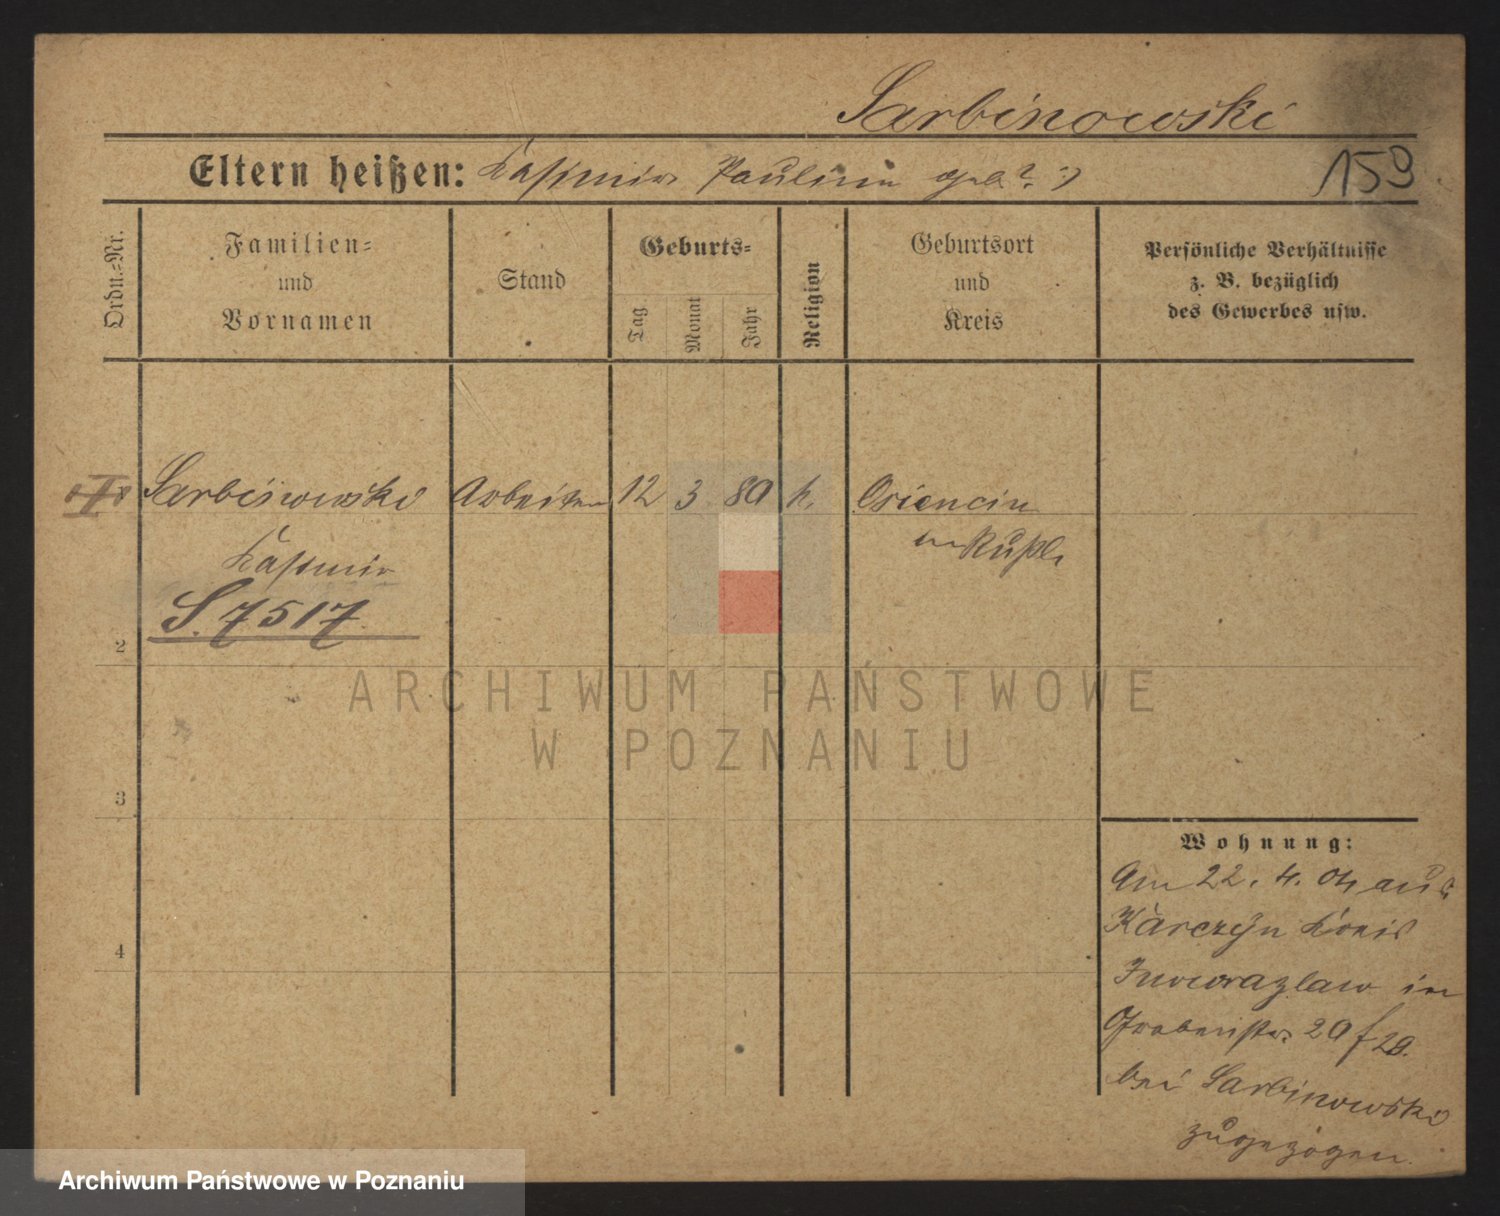 Sarbinowski
Eltern heißen: Kasimir Paulina geb. ? :)
159
Ordn.-Nr.
Familien-
und
Vornamen
Stand
Geburts-
Tag
Monat
Jahr
Religion
Geburtsort
und
Kreis
Persönliche Verhältnisse
z. B. bezüglich
des Gewerbes usw.
Sarbinowski Arbeiter 12 3 80 k. Osiencin
Kasimir in Rußl.
S. 7517
2
3
4
Wohnung:
Am 22. 4. 04 aus
Karczyn Kreis
Inowrazlaw in
Grabenstr. 29
bei Sarbinowski
zugezogen.
ARCHIWUM PAŃSTWOWE
W POZNANIU
Archiwum Państwowe w Poznaniu